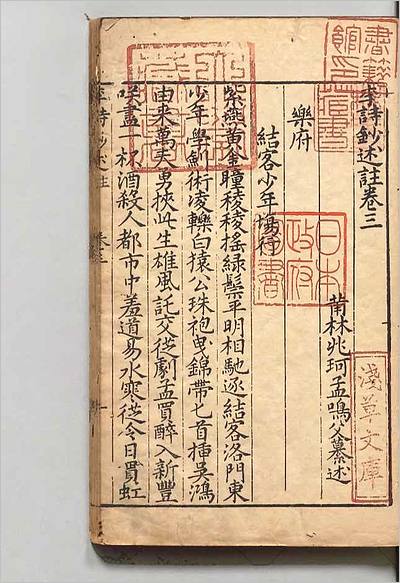 李詩鈔述註卷三
莆林兆珂孟鳴父纂述
樂府
結客少年場行
紫燕黃金瞳稜稜搖緑鬃平明相馳逐結客洛門東
少年學釼術凌轢白猿公珠袍曳錦帶匕首插吳鴻
由来萬夫勇挾此生雄風託交從劇孟買醉入新豐
咲盡一杯酒殺人都市中羞道易水寒從令日貫虹
李詩鈔述註 卷三
日本政府圖書
淺草文庫